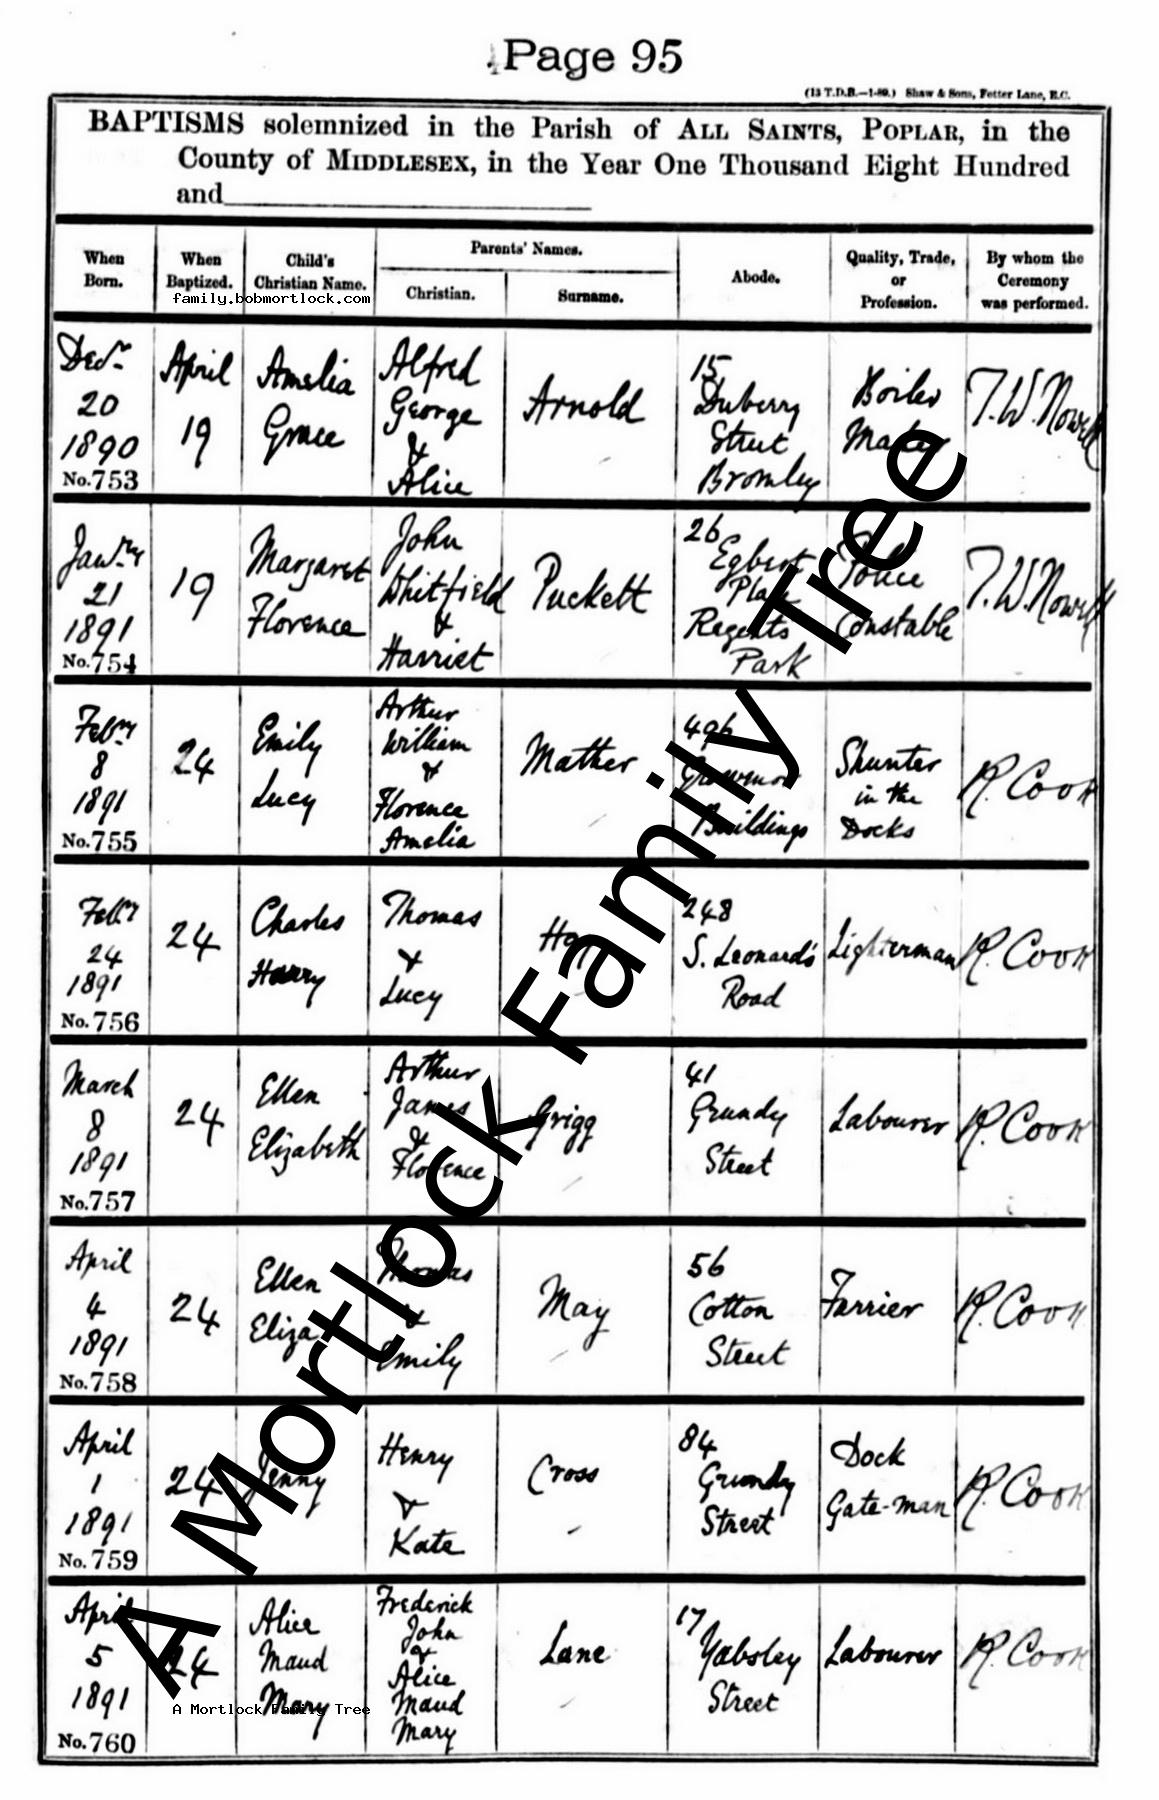 Page 95
(13 T.D.B.—1-89.) Shaw & Sons, Fetter Lane, E.C.
BAPTISMS solemnized in the Parish of ALL SAINTS, POPLAR, in the
County of MIDDLESEX, in the Year One Thousand Eight Hundred
and
When Born.
When Baptized.
Child's Christian Name.
Parents' Names.
Christian.
Surname.
Abode.
Quality, Trade, or Profession.
By whom the Ceremony was performed.
family.bobmortlock.com
Decr
20
1890
No. 753
April
19
Amelia
Grace
Alfred
George
&
Alice
Arnold
15
Duberry
Street
Bromley
Boiler
Maker
T.W. Nowell
Janry
21
1891
No. 754
19
Margaret
Florence
John
Whitfield
&
Harriet
Puckett
26
Egbert
Place
Regents
Park
Police
Constable
T.W. Nowell
Febry
8
1891
No. 755
24
Emily
Lucy
Arthur
William
&
Florence
Amelia
Mather
496
Buildings
Shunter
in the
Docks
R. Cook
Febry
24
1891
No. 756
24
Charles
Harry
Thomas
&
Lucy
248
S. Leonard's
Road
Lighterman
R. Cook
March
8
1891
No. 757
24
Ellen
Elizabeth
Arthur
James
&
Florence
Grigg
41
Grundy
Street
Labourer
R. Cook
April
4
1891
No. 758
24
Ellen
Eliza
Thomas
&
Emily
May
56
Cotton
Street
Farrier
R. Cook
April
1
1891
No. 759
24
Jenny
Henry
&
Kate
Cross
84
Grundy
Street
Dock
Gate-man
R. Cook
April
5
1891
No. 760
24
Alice
Maud
Mary
Frederick
John
&
Alice
Maud
Mary
Lane
17
Yabsley
Street
Labourer
R. Cook
A Mortlock Family Tree
A Mortlock Family Tree